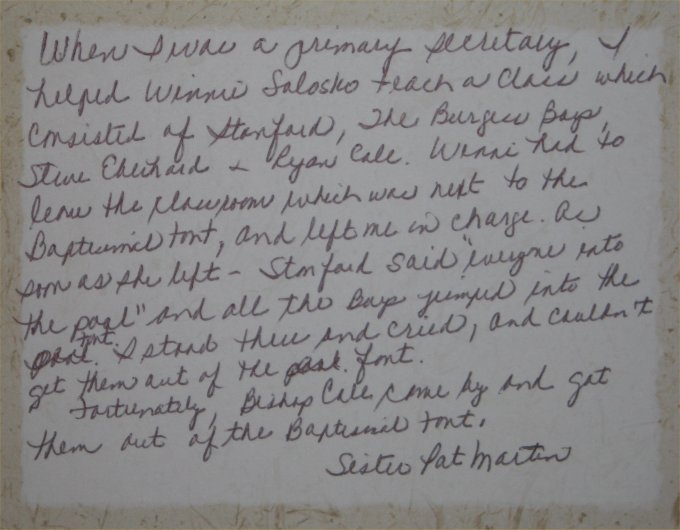 When I was a primary secretary, I
helped Winnie Solosko teach a Class which
Consisted of Stanford, The Burgess Boys,
Steve Eberhard + Ryan Cale. Winni had to
leave the classroom which was next to the
Baptismal font, and left me in charge. As
soon as she left - Stanford said "everyone into
the pool" and all the Boys jumped into the
font. I stood there and cried, and couldn't
get them out of the font.
Fortunately, Bishop Cale came by and got
them out of the Baptismal font.
Sister Pat Martin